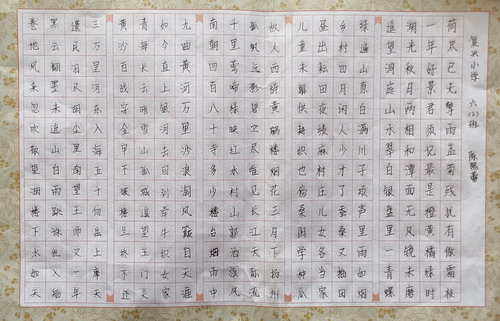 复兴小学 六(2)班
荷尽已无擎雨盖菊残犹有傲霜枝
一年好景君须记最是橙黄橘绿时
湖光秋月两相和潭面无风镜未磨
遥望洞庭山水翠白银盘里一青螺
绿遍山原白满川子规声里雨如烟
乡村四月闲人少才了蚕桑又插田
昼出耘田夜绩麻村庄儿女各当家
儿童未解供耕织也傍桑阴学种瓜
故人西辞黄鹤楼烟花三月下扬州
孤帆远影碧空尽唯见长江天际流
千里莺啼绿映红水村山郭酒旗风
南朝四百八十寺多少楼台烟雨中
九曲黄河万里沙浪淘风簸自天涯
如今直上银河去同到牵牛织女家
青海长云暗雪山孤城遥望玉门关
黄沙百战穿金甲不破楼兰终不还
三万里河东入海五千仞岳上摩天
遗民泪尽胡尘里南望王师又一年
黑云翻墨未遮山白雨跳珠乱入船
卷地风来忽吹散望湖楼下水如天